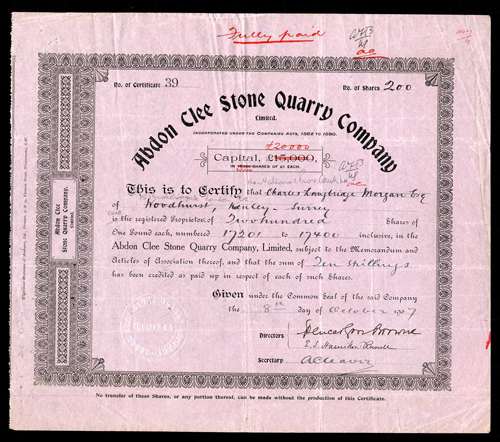 Fully paid
No. of Certificate 39
No. of Shares 200
Abdon Clee Stone Quarry Company
Limited.
INCORPORATED UNDER THE COMPANIES ACTS, 1862 TO 1890.
£20000
Capital, £15,000,
IN 15,000 SHARES OF £1 EACH.
This is to Certify that Charles Langbridge Morgan Esq
of Woodhurst Kenley Surrey
is the registered Proprietor of Two hundred Shares of
One Pound each, numbered 17201 to 17400 inclusive, in the
Abdon Clee Stone Quarry Company, Limited, subject to the Memorandum and
Articles of Association thereof, and that the sum of Ten Shillings
has been credited as paid up in respect of each of such Shares.
Given under the Common Seal of the said Company
the 8th day of October 1907
Directors
Secretary A Cleaver
Abdon Clee
Stone Quarry Company,
Limited.
No transfer of these Shares, or any portion thereof, can be made without the production of this Certificate.